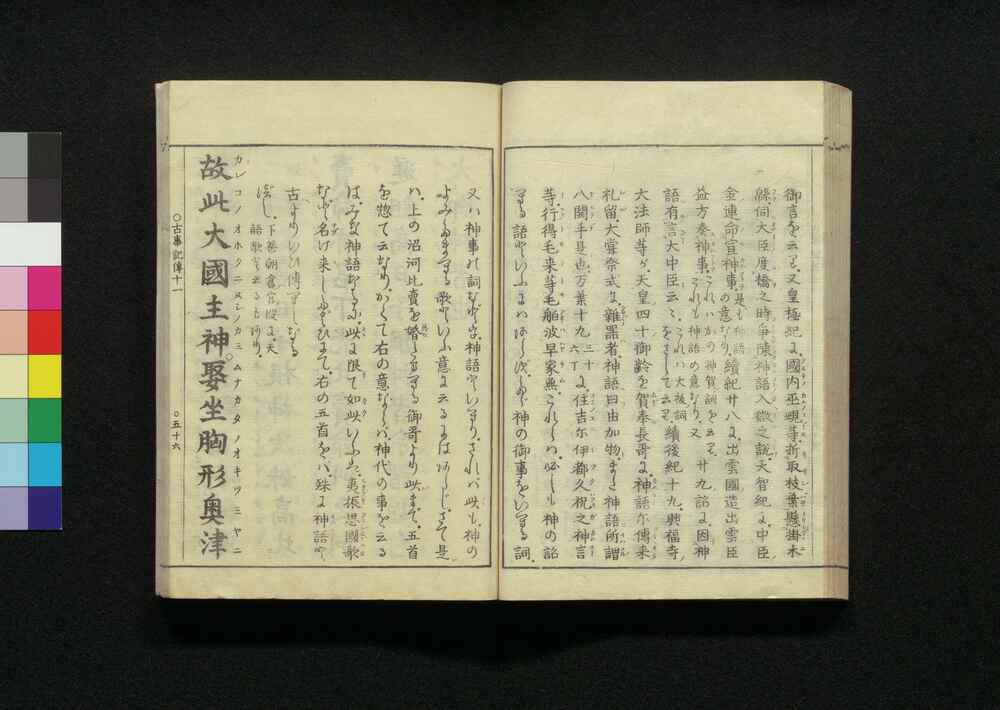 御言を云り、又皇極紀に、國内巫覡等折取枝葉懸掛木
綿伺大臣度橋之時爭陳神語入微之說、天智紀に、中臣
金連命宣神事、
これは
續紀廿八に、出雲國造出雲臣
益方奏神事、これハかの神賀詞を云り、又
これも神語の意なり、
廿九詔に、因神
語有言大中臣云々、これハ大祓詞
をさして云り、
續後紀十九、興福寺
大法師等が、天皇四十御齡を賀奉長哥に、神語尓傳来
礼留、大嘗祭式に、雜器者、神語曰由加物、また神語所謂
八開手是也、万葉十九
三十
六丁
に、住吉尓伊都久祝之神言
等、行得毛来等毛舶波早家無、これらハ必しも神の詔
へる語といふにハあらず、神の御事をいへる詞、
又ハ神事の詞などを、神語といへり、されバ此も、神の
よみたまへる歌といふ意に云るにはあらじ、さて是
ハ、上の沼河比賣を婚ふとある御哥より此まで、五首
を惣て云なり、かくて右の意ならバ、神代の事を云る
は、みな神語なるに、此に限て如此いふは、夷振思國歌
など名け来したぐひにて、右の五首をバ、殊に神語と、
古よりいひ傳へしなる
べし、
下卷朝倉宮段に、天
語歌と云るもあり、
故此大國主神。娶坐胸形奥津
カレコノオホクニヌシノカミ ムナカタノオキツミヤニ
○古事記傳十一
○五十六